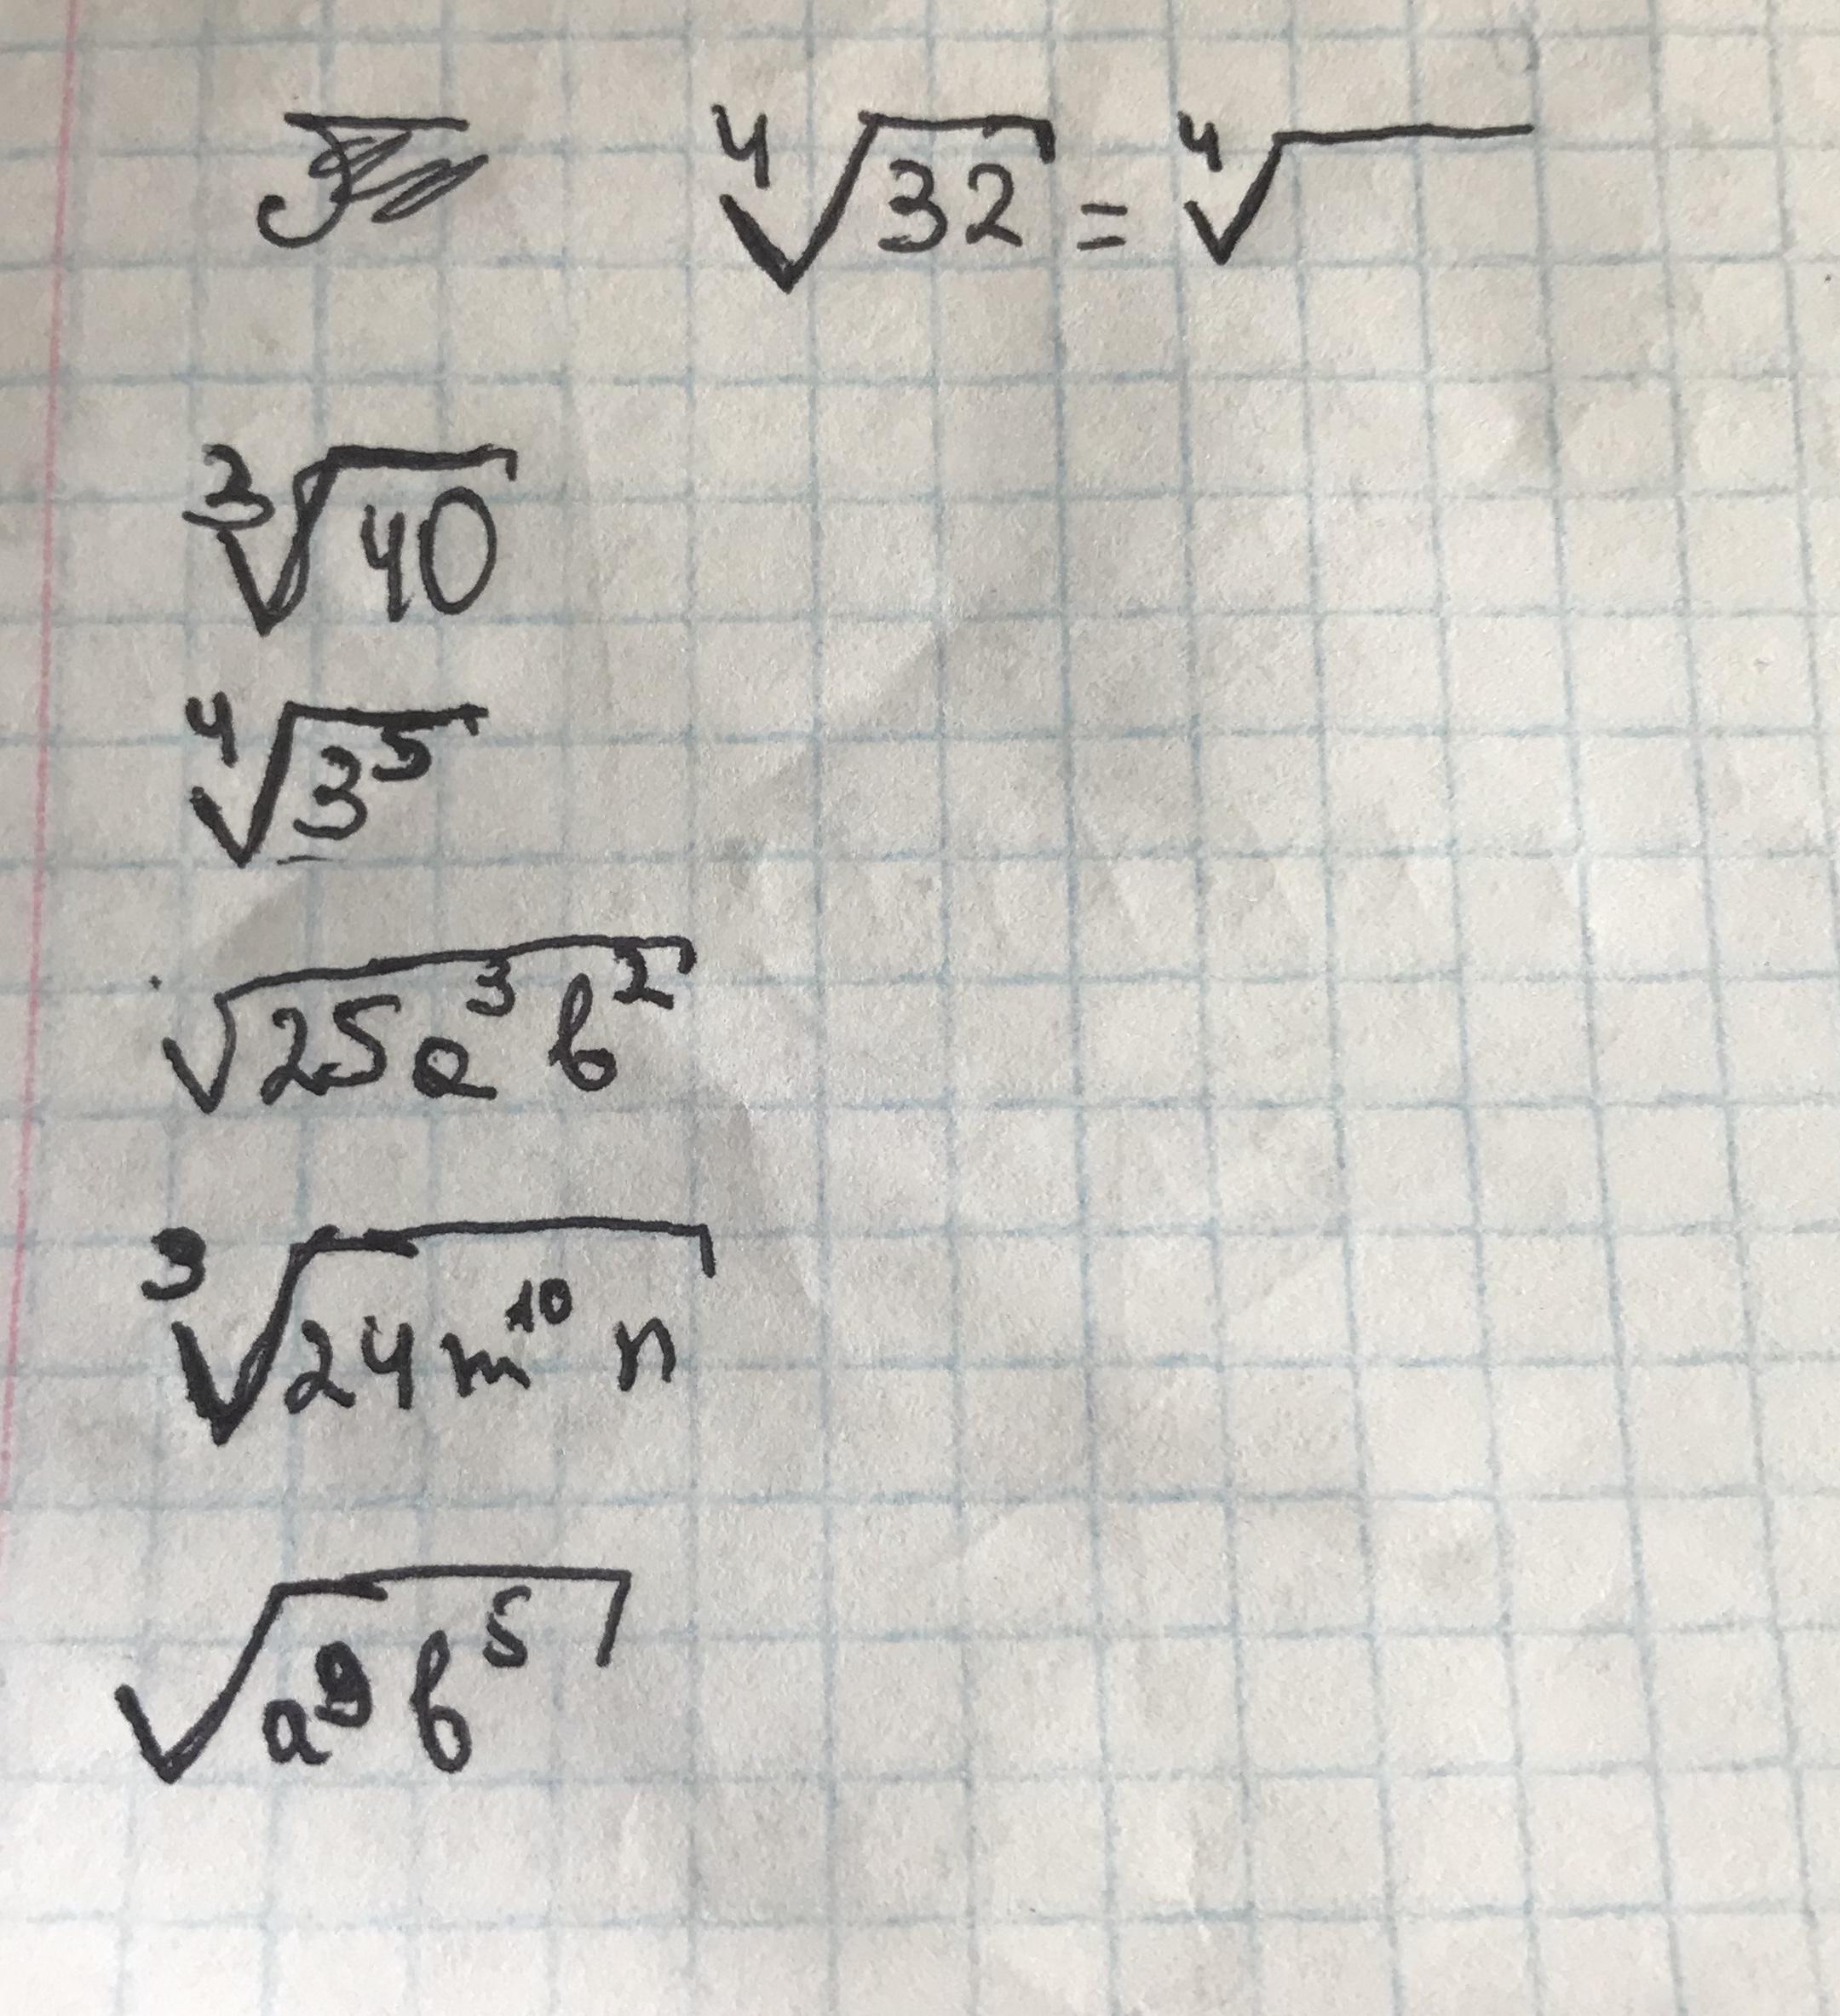 ⁴√32 = ⁴√
³√40
⁴√3⁵
√25a³b²
³√24m¹⁰n
√a⁹b⁵